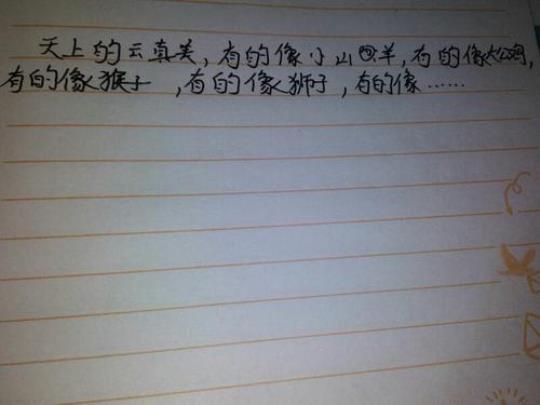 天上的云真美,有的像小山羊,有的像大公鸡,
有的像猴子,有的像狮子,有的像……